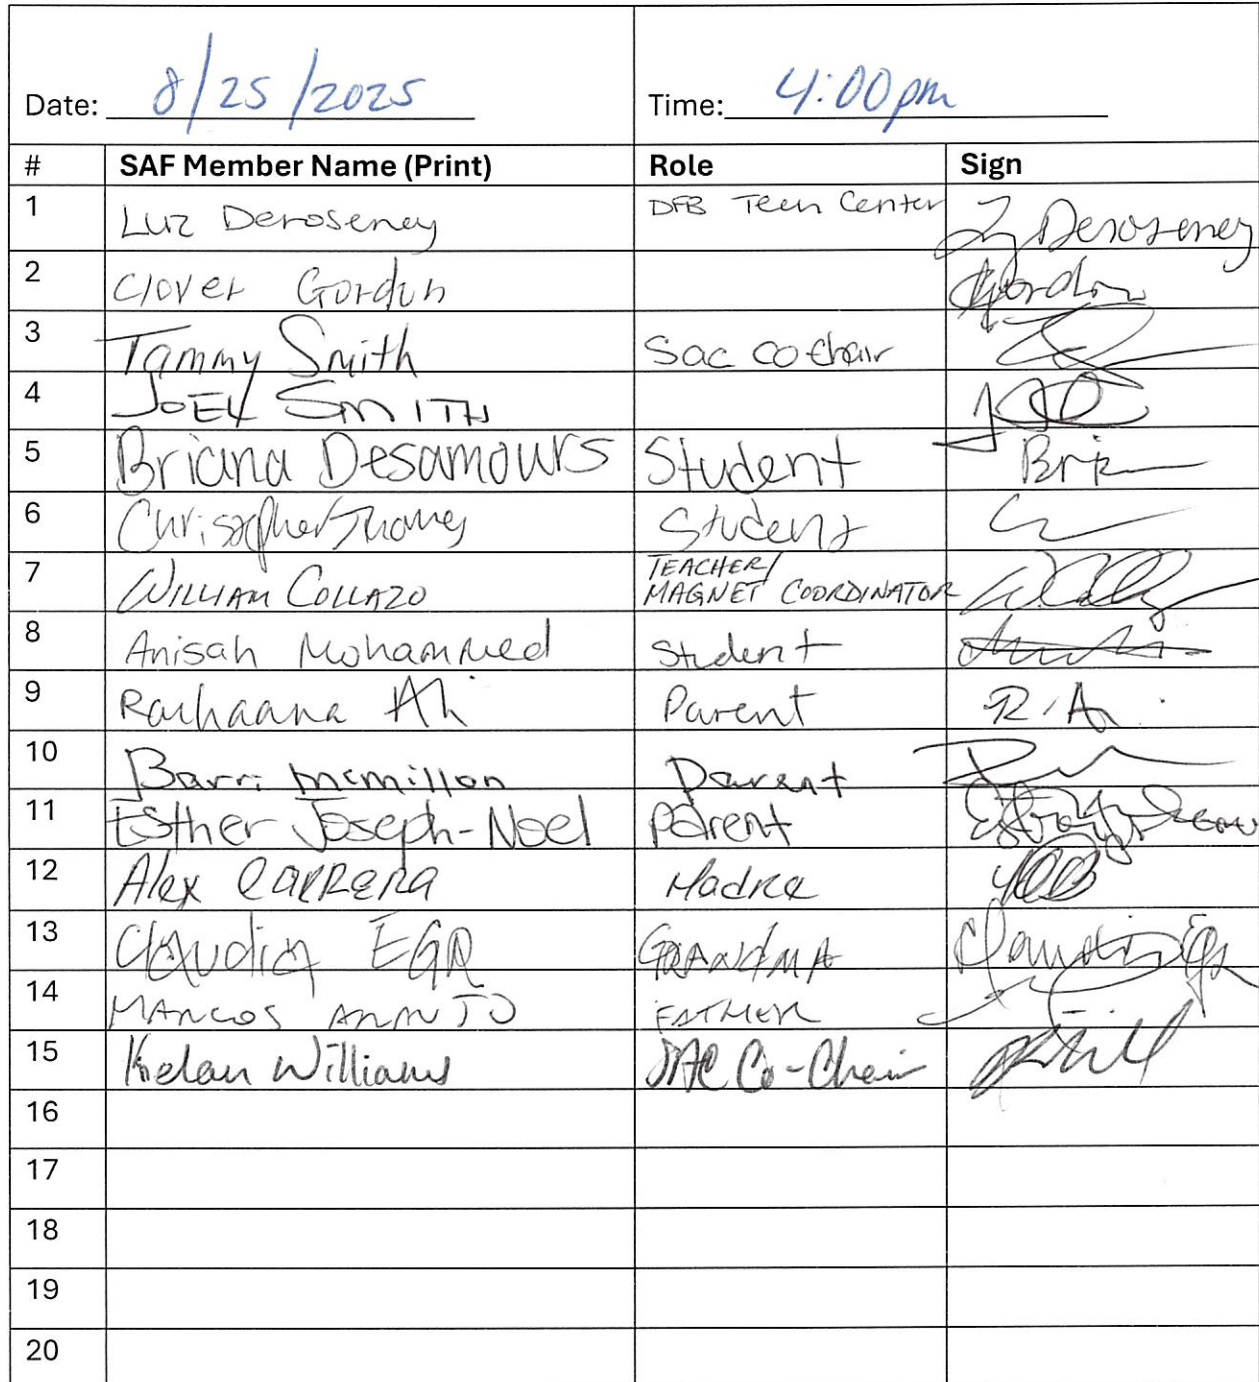 Date: 8/25/2025 Time: 4:00pm
# SAF Member Name (Print) Role Sign
1 Luz Deroseney DFB Teen Center Deroseney
2 Clover Gordon Gordon
3 Tammy Smith Sac co chair
4 JOEY SMITH
5 Briana Desamours Student Bri
6 Student
7 WILLIAM COLLAZO TEACHER/
MAGNET COORDINATOR
8 Anisah Mohammed Student
9 Raihaana Ali Parent R.A.
10 Barri mcmillon Parent
11 Esther Joseph-Noel parent
12 Alex CARRERA Madre
13 Claudia EGR GRANDMA
14 MARCOS FATHER
15 Kelan Williams SAC Co-Chair
16
17
18
19
20